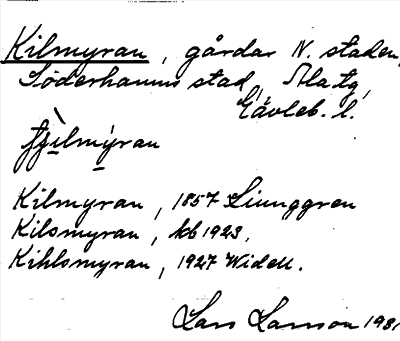 Kilmyran, gårdar N. staden,
Söderhamns stad, Ala tg,
Gävleb. l.
Kilmyran, 1857 Ljunggren
Kilsmyran, kb 1923,
Kihlsmyran, 1927 Widell.
Lars Larsson 1931